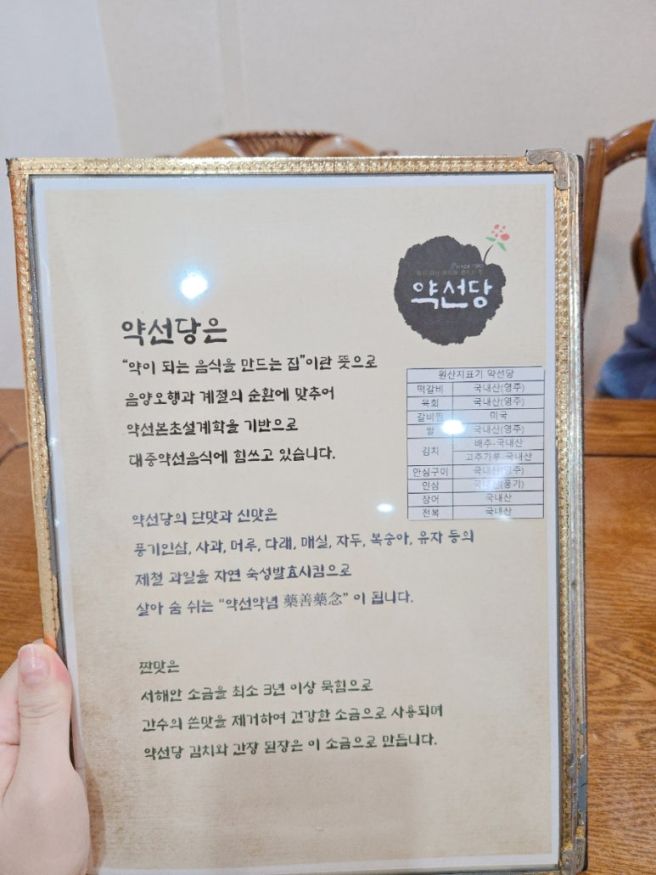 약선당
약선당은
"약이 되는 음식을 만드는 집"이란 뜻으로
음양오행과 계절의 순환에 맞추어
약선본초설계학을 기반으로
대중약선음식에 힘쓰고 있습니다.
원산지표기 약선당
떡갈비 국내산(영주)
육회 국내산(영주)
갈비찜 미국
쌀 국내산(영주)
김치 배추-국내산
고추가루-국내산
안심구이 국내산(영주)
인삼 국내산(풍기)
장어 국내산
전복 국내산
약선당의 단맛과 신맛은
풍기인삼, 사과, 머루, 다래, 매실, 자두, 복숭아, 유자 등의
제철 과일을 자연 숙성발효시킴으로
살아 숨 쉬는 "약선약념 藥善藥念" 이 됩니다.
짠맛은
서해안 소금을 최소 3년 이상 묵힘으로
간수의 쓴맛을 제거하여 건강한 소금으로 사용되며
약선당 김치와 간장 된장은 이 소금으로 만듭니다.